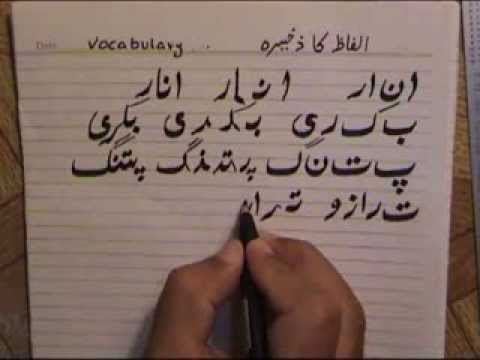 Date: Vocabulary . . . الفاظ کا ذخیرہ
ا ن ا ر ا نـ ا ر انار
ب ک ر ی بـ کـ ر ی بکری
پ ت ن گ پـ تـ نـ گ پتنگ
ت ر ا ز و تـ ر ا